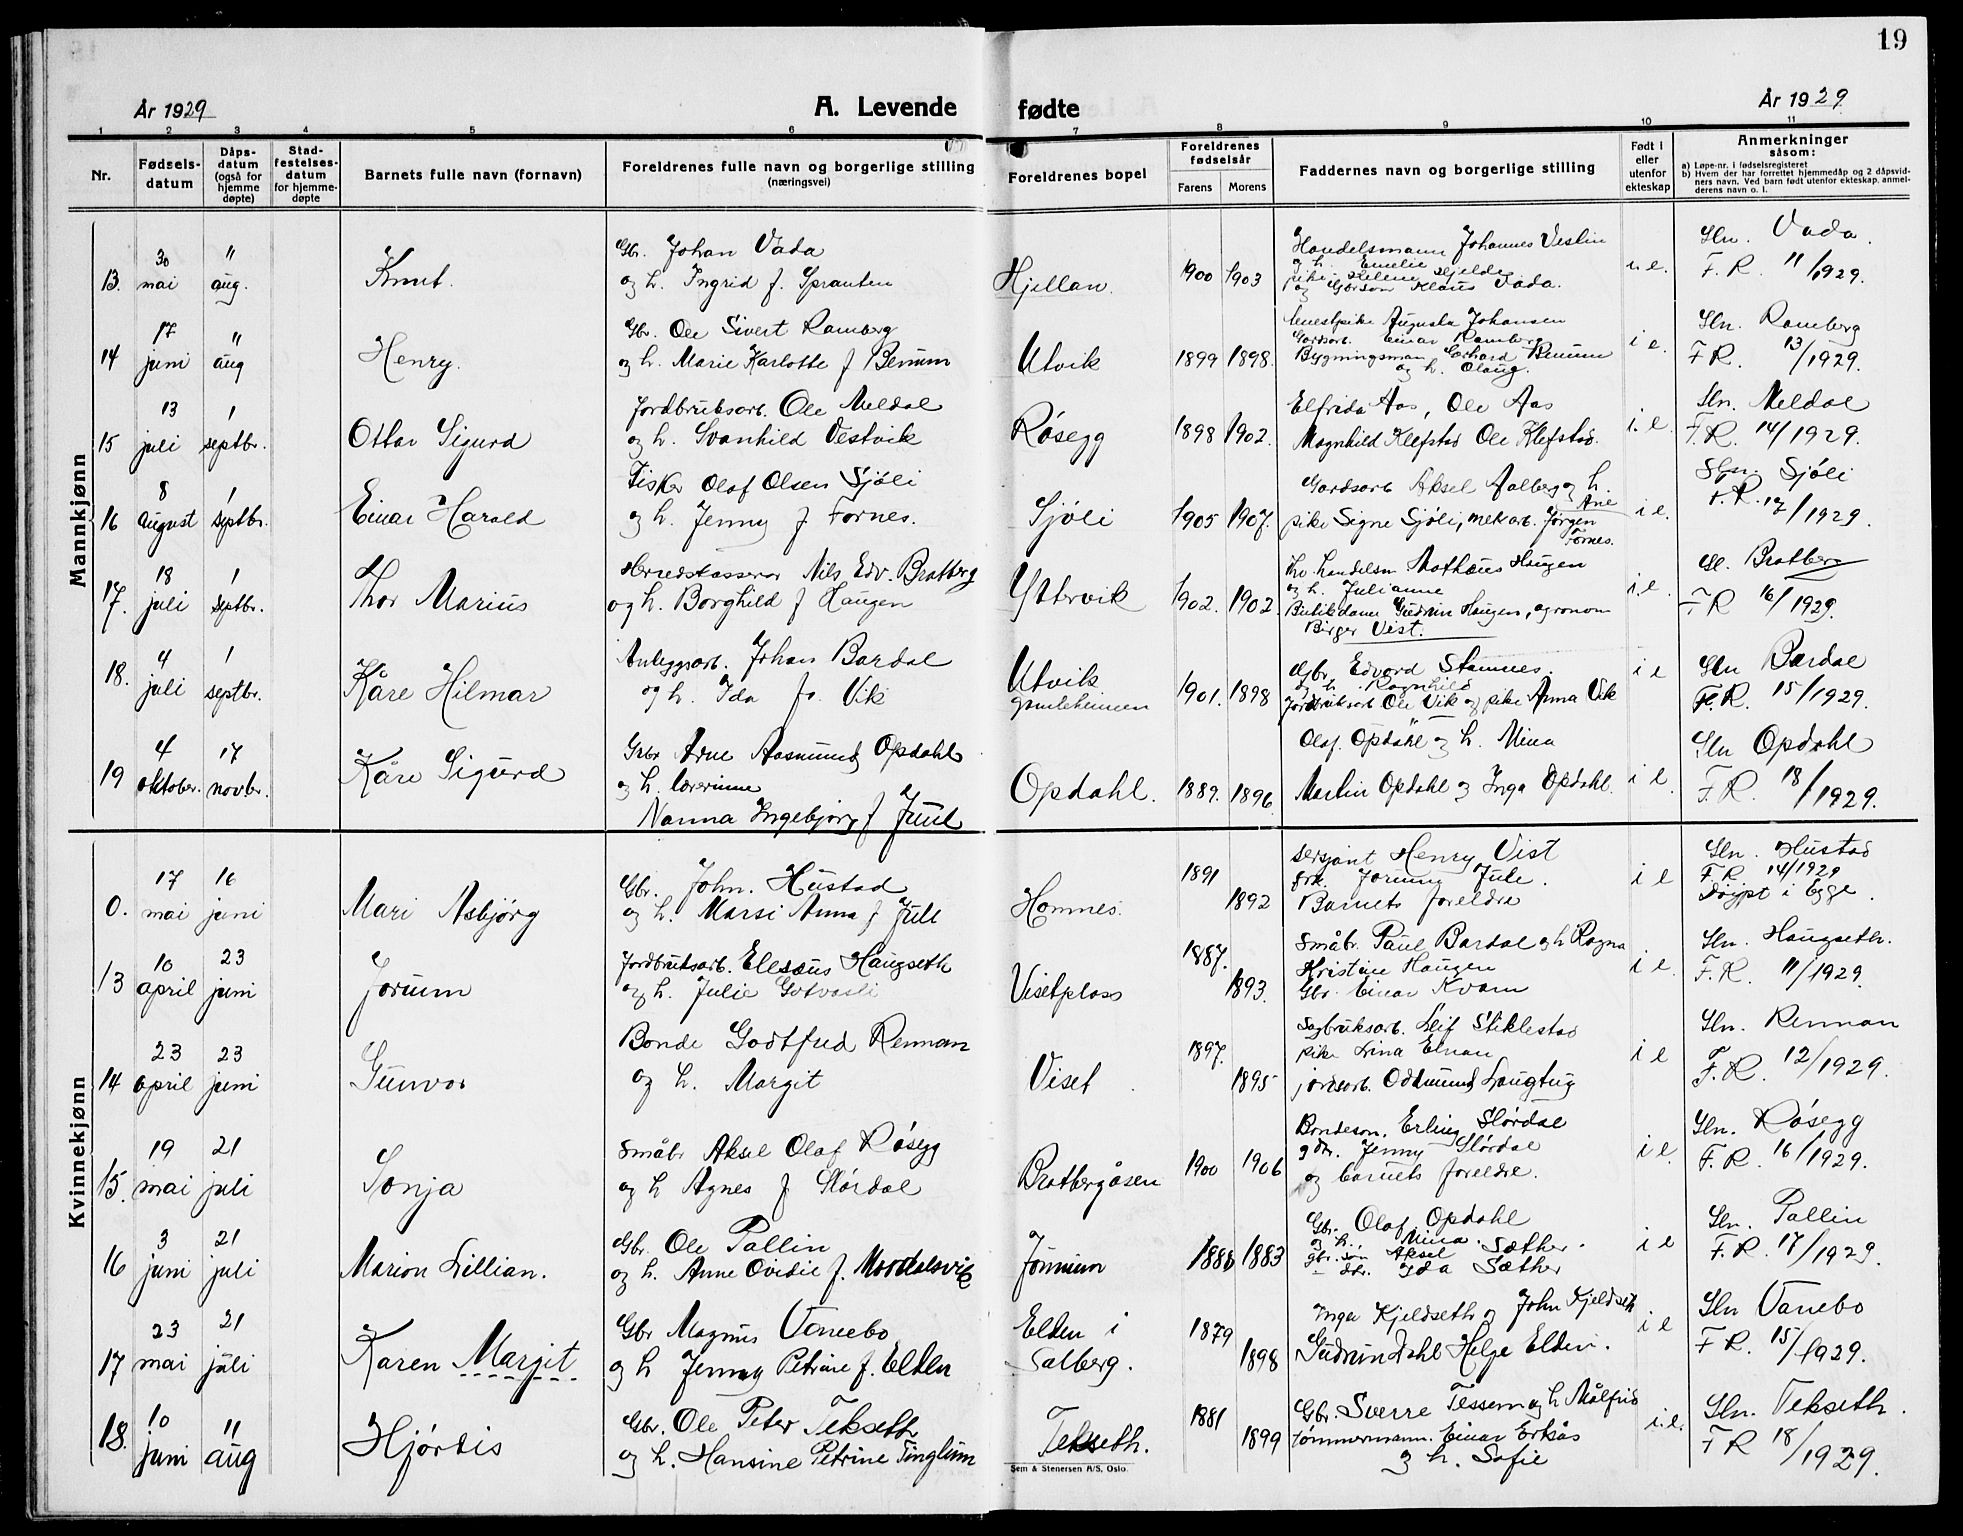 19
År 1929 A. Levende fødte År 1929
1 2 3 4 5 6 7 8 9 10 11
Nr. Fødsels-datum Dåps-datum (også for hjemme døpte) Stad-festelses-datum for hjemme-døpte Barnets fulle navn (fornavn) Foreldrenes fulle navn og borgerlige stilling (næringsvei) Foreldrenes bopel Foreldrenes fødselsår Farens Morens Faddernes navn og borgerlige stilling Født i eller utenfor ekteskap Anmerkninger såsom:
a) Løpe-nr. i fødselsregisteret
b) Hvem der har forrettet hjemmedåp og 2 dåpsvid-
ners navn. Ved barn født utenfor ekteskap, anmel-
derens navn o. l.
Mannkjønn
13. 30 mai 11 aug. Knut. Gbr. Johan Vada
og h. Ingrid f. Sprauten Hjellan. 1900 1903 Handelsmann Johannes Vestin
og h. Emelie
pike Helene Hjelde
og Gårson Klaus Vada. i. e. Sln. Vada.
F. R. 11/1929.
14 17 juni 11 aug Henry. Gbr. Ole Sivert Ramberg
og h. Marie Karlotte f Benum Utvik 1899 1898. Augusta Johansen
Gardsarb. Einar Ramberg
Bygningsman Gerhard Benum
og h. Olaug. i e. Sln. Ramberg
F R. 13/1929.
15 13 juli 1 septbr. Ottar Sigurd Jordbruksarb. Ole Meldal
og h. Svanhild Vestvik Røsegg 1898 1902. Elfrida Aas, Ole Aas
Magnhild Klefstad Ole Klefstad. i. e. Sln. Meldal
F. R. 14/1929.
16 8 august 1 septbr. Einar Harald Fisker Olaf Olsen Sjøli
og h. Jenny f. Fornes. Sjøli 1905 1907. Gardsarb Aksel Aalberg og h.
Ane
pike Signe Sjøli, mek arb. Jørgen
Fornes. i e. Sln. Sjøli
F. R. 17/1929.
17. 18 juli 1 septbr. Thor Marius Herredskasserer Nils Edv. Bratberg
og h. Borghild f Haugen Yttervik 1902. 1902. handelsm Mathæus Haugen
og h. Julianne
Butikdame Gudrun Haugen, agronom
Birger Vist. i e. Sl. Bratberg
F R 16/1929.
18. 4 juli 1 septbr. Kåre Hilmar Anleggsarb. Johan Bardal
og h. Ida f. Vik Utvik
gamleheimen 1901. 1898 Gbr. Edvard Stamnes.
og h. Ragnhild
Jordbruksarb Ole Vik og pike Anna Vik i e Sln Bardal
F. R. 15/1929.
19 4 oktober. 17 novbr. Kåre Sigurd Gbr Arne Aasmund Opdahl
og h. lærerinne
Nanna Ingebjørg f Juul Opdahl. 1889. 1896 Olaf Opdahl og h. Mina
Martin Opdahl og Inga Opdahl. i e. Sln Opdahl
F. R. 18/1929.
Kvinnekjønn
0. 17 mai 16 juni Mari Asbjørg Gbr. John. Hustad
og h. Marsi Anna f Jule Homnes. 1891 1892 sersjant Henry Vist
frk. Jorunn Jule.
Barnets foreldre i e Sln. Hustad
F. R. 14/1929
Døypt i Egge.
13 10 april 23 juni Jorunn Jordbruksarb. Elesæus Haugseth
og h. Julie Gotvasli Visetplass 1887. 1893. Småbr. Paul Bardal og h Ragna
Kristine Haugen
Gbr. Einar Kvam i e. Sln. Haugseth.
F. R. 11/1929.
14 23 april 23 juni Gunvor Bonde Godtfred Rennan
og h. Margit Viset 1897. 1895 Sagbruksarb. Leif Stiklestad
pike Lina Elnan
jordarb. Oddmund Langtug i e Sln. Rennan
F. R. 12/1929.
15. 19 mai 21 juli Sonja Småbr Aksel Olaf Røsegg
og h Agnes f Slørdal Bratbergåsen 1900 1906 Bondesøn. Erling Slørdal
gdr. Jenny Slørdal
og barnets foreldre. i e. Sln. Røsegg
F. R. 16/1929.
16 3 juni 21 juli Marion Lillian. Gbr. Ole Pallin
og h. Anne Ovidie f. Mordalsvik Jønnum 1888 1883 Gbr. Olaf Opdahl
og h. Mina.
gbr. søn Aksel Sæther.
— dtr. Ida Sæther i e Sln. Pallin
F. R. 17/1929.
17 23 mai 21 juli Karen Margit Gbr Magnus Vanebo
og h Jenny Petrine f. Elden Elden i
Salberg. 1879 1898 Inga Kjeldseth og John Kjeldseth
Gudrun Dahl Helge Elden. i e Sln Vanebo
F R. 15/1929.
18. 10 juni 11 aug Hjørdis Gbr. Ole Peter Tekseth
og h. Hansine Petrine Tinglum Tekseth. 1881 1899 Gbr. Sverre Tessem og h Målfrid
tømmermann. Einar Erksås
og h. Sofie i. e. Sln. Tekseth.
F R 18/1929.
Sem & Stenersen A/S, Oslo.